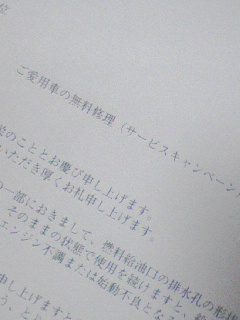 位
ご愛用車の無料修理（サービスキャンペーン
のこととお慶び申し上げます。
いただき厚くお礼申し上げます。
一部におきまして、燃料給油口の排水孔の形状
そのままの状態で使用を続けますと、
エンジン不調または始動不良となる
申し上げますと